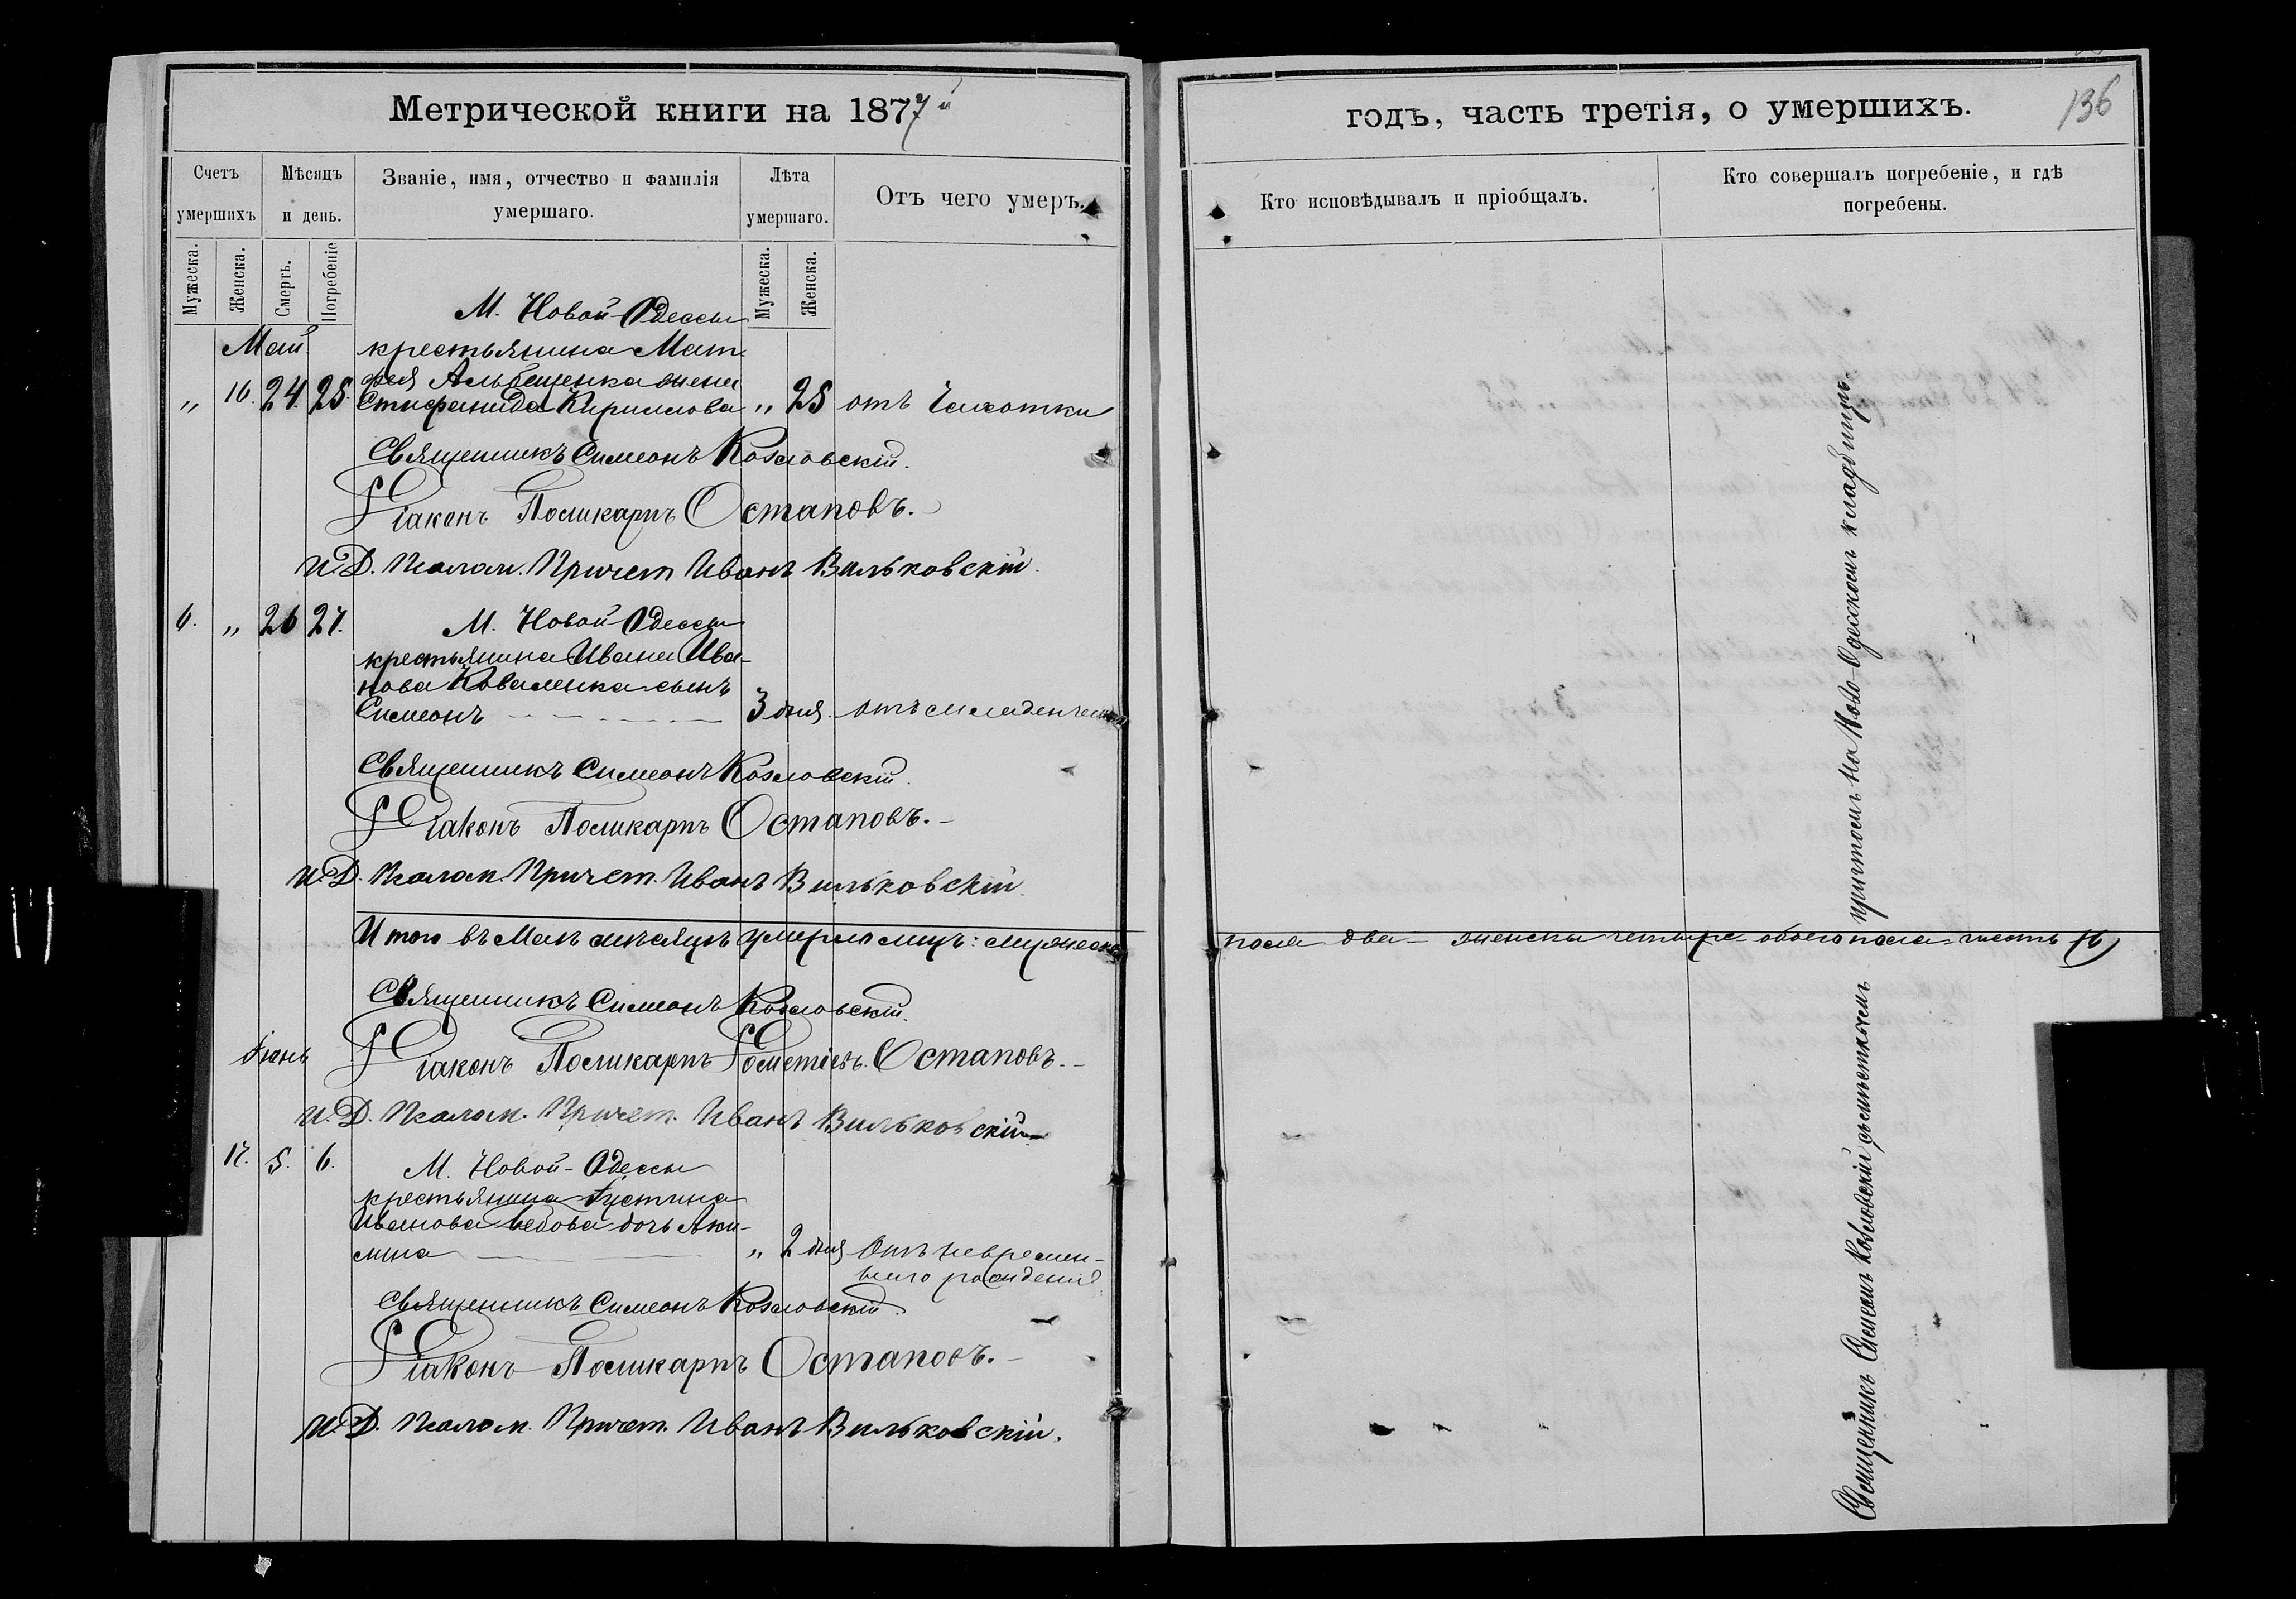 Метрической книги на 1877й
Счетъ умершихъ
Мѣсяцъ и день.
Званіе, имя, отчество и фамилія умершаго.
Лѣта умершаго.
Отъ чего умеръ.
Мужеска.
Женска.
Смерть.
Погребеніе
Мужеска.
Женска.
Май
М. Новой-Одессы
крестьянина Мат-
фея Альбещенка жена
„ 16. 24. 25. Стефанида Кириллова „ 25 отъ Чахотки
Священникъ Симеонъ Козловскій.
Діаконъ Поликарпъ Остаповъ.
И. Д. Псалом. Причет Иванъ Вильковскій.
6. „ 26 27. М. Новой Одессы
крестьянина Ивана Ива-
нова Коваленка сынъ
Симеонъ 3 дня. отъ младенческой
Священникъ Симеонъ Козловскій.
Діаконъ Поликарпъ Остаповъ.-
И. Д. Псалом. Причет. Иванъ Вильковскій.
Итого въ Маѣ мѣсяцѣ умерло лицъ: мужеска
Священникъ Симеонъ Козловскій.
Іюнь
Діаконъ Поликарпъ Остаповъ.-
И. Д. Псалом. Причет. Иванъ Вильковскій
17. 5. 6. М. Новой-Одессы
крестьянина Густина
Иванова дочь Аки-
лина „ 2 дня Отъ невремен-
наго рожденія.
Священникъ Симеонъ Козловскій.
Діаконъ Поликарпъ Остаповъ.-
И. Д. Псалом. Причет. Иванъ Вильковскій.
годъ, часть третія, о умершихъ.
136
Кто исповѣдывалъ и пріобщалъ.
Кто совершалъ погребеніе, и гдѣ погребены.
пола два - женска четыре обоего пола шесть (6)
Священникъ Симеонъ Козловскій съ причтомъ на Ново-Одесскомъ кладбищѣ.